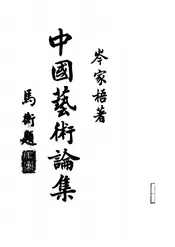 岑家梧著
中國藝術論集
馬衡題